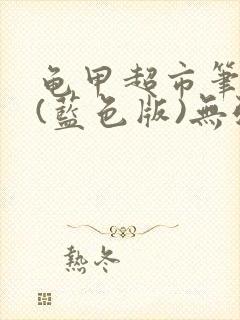 龟甲超市筆
(藍色版)無
熱冬